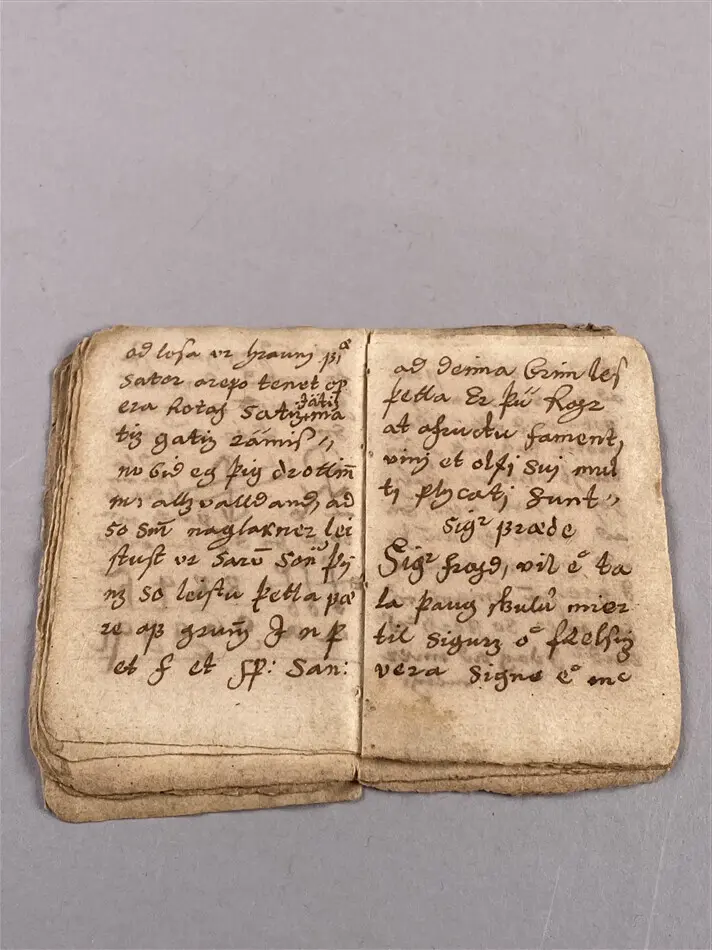 ad losa ur hraunj þiᵒ
Sator arepo tenet op
era Rotas Satiz, ma
Iatiz
tiz gatiz rämis„
nu bid eg þig drottiñ
allz valldand, ad
so sm̄ naglarner lei
stust ur Sarū Sonᵒ þij
nz so leistu þetta
re ap grum̄ J n p
et f et sp: San:
ad deima Grim les
þetta Er þü Rær
at afructu fament,
vinj et olfi sui mul
tj plycatj Sunt„
Sigʳ præde
Sigʳ frægd, vil eᵒ ta
la þaug skulu mier
til Sigurz oᵒ frelsiz
vera Signe eᵒ mc